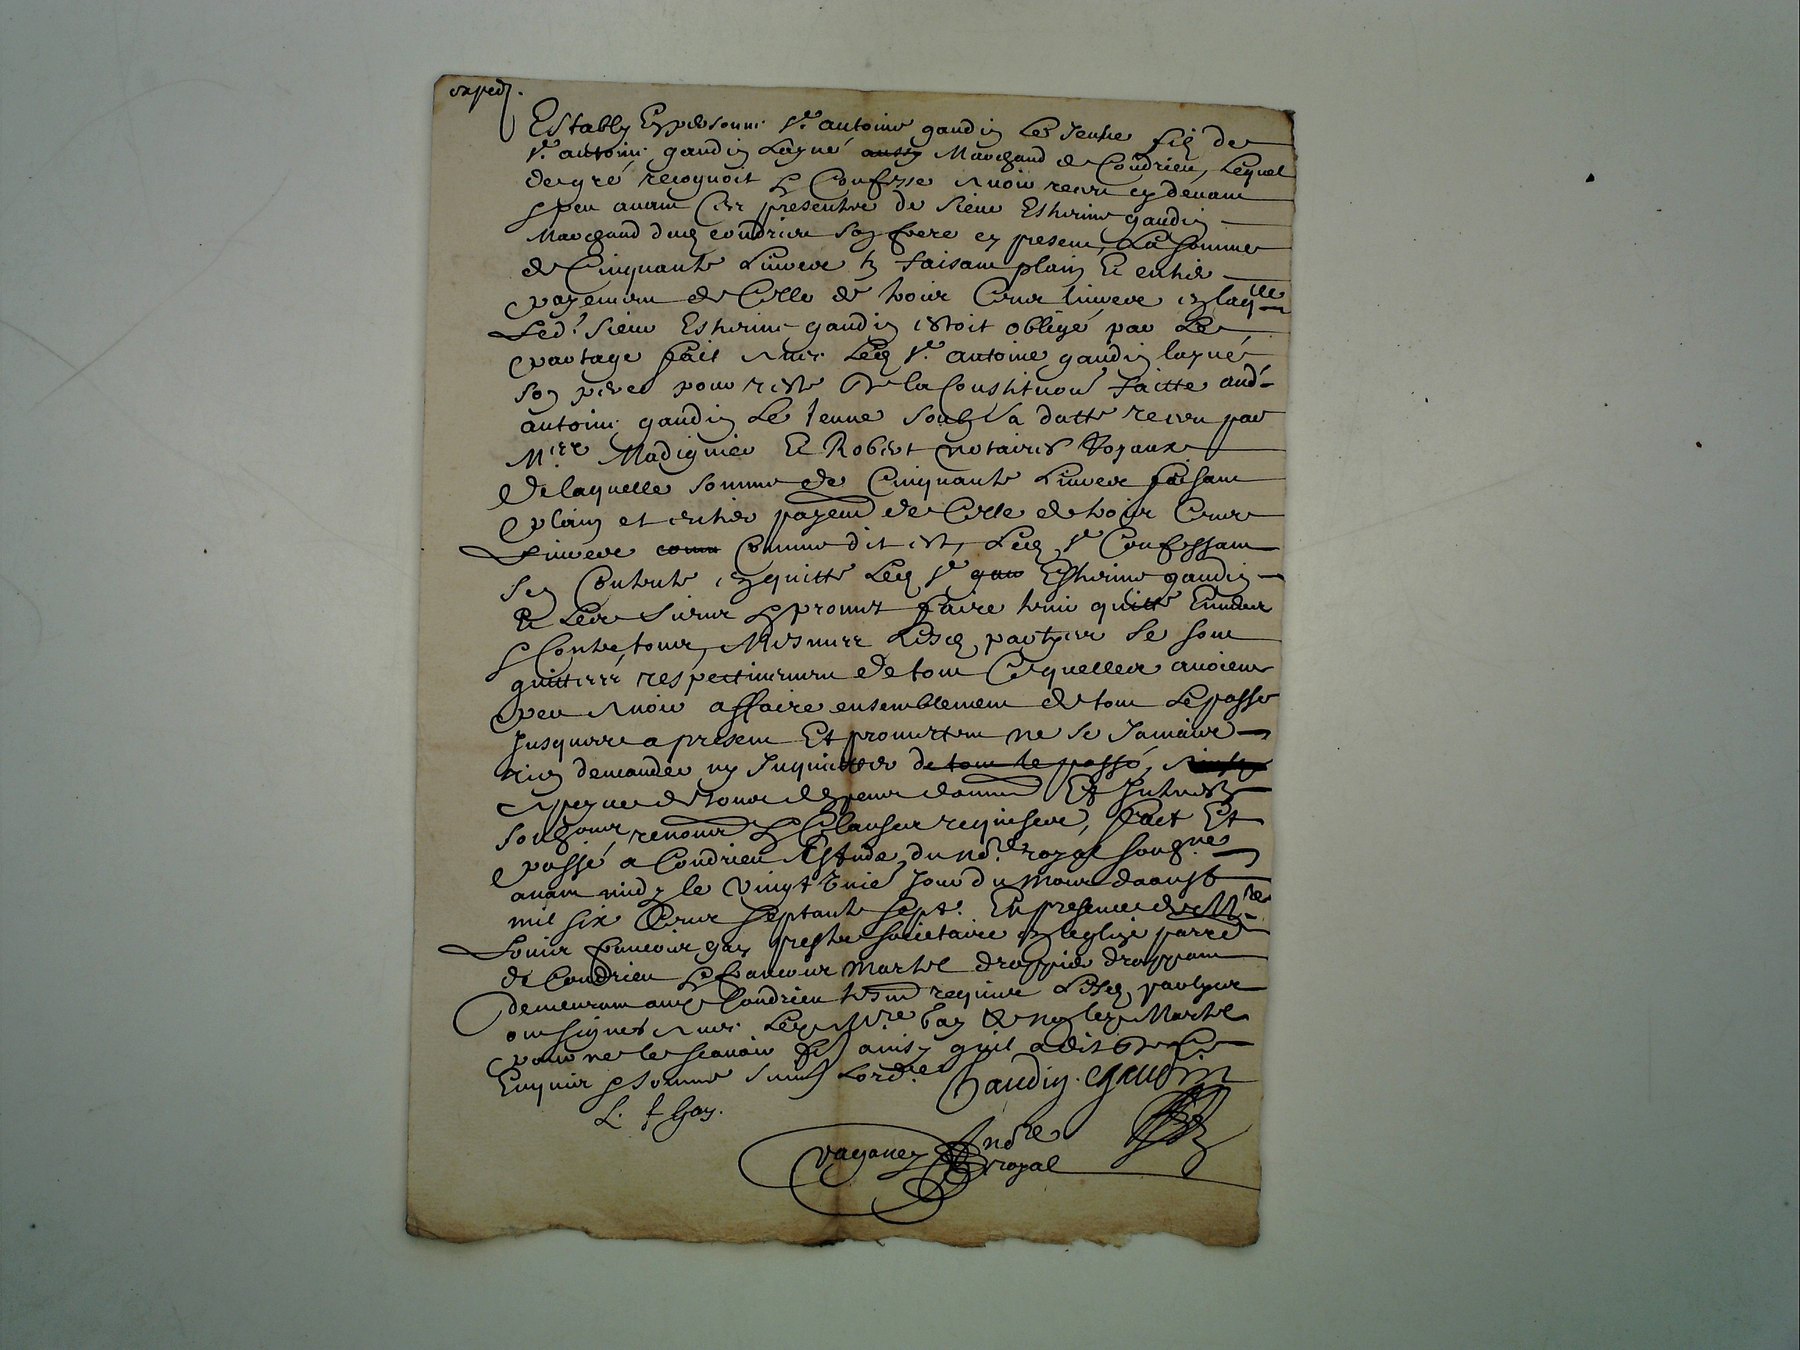 exped.
Estably En personne Sr. antoine gaudin Le Jeune fils de
Sr. antoine gaudin Layné aussy Marchand de Condrieu, Lequel
de gré recognoit & Confesse avoir receu cy devant
& peu avant Ces presentes de Sieur Estienne gaudin
Marchand dud condrieu son frere cy present, La somme
de Cinquante Livres faisant plain Et entier
payement de Celle de trois Cens livres en laqlle
Led. Sieur Estienne gaudin estoit obligé par Le
partage fait avec Led Sr. antoine gaudin layné
son pere pour reste de la Constitution faitte aud.
antoine gaudin Le Jeune soubz sa datte receu par
Mres Madignier Et Robert notaires Royaux
De laquelle somme de Cinquante Livres faisant
plain et entier payemt de Celle de trois Cens
Livres comm Comme dit est, Led Sr Confessant
sen Contente en quitte Led Sr gau Estienne gaudin
Et Les Siens & promet faire tenir quitte Envers
& Contre tous, Mesmes Lesd parties se sont
quittées respectivement de tout Ce quelles avoient
peu avoir affaire ensemblement de tout Le passé
Jusques a present Et promettent ne se Jamais
rien demander ny Inquietter de tout le passé,
a peyne de tous despens domm Et Interestz
soubzmis, renonn & Clauses requises, fait Et
passé a Condrieu Estude du nore. royal soubzné
avant midy le vingt unie Jour du mois daoust
mil six Cens septante sept. En presence de Mre
Louis francois gay prestre societaire en leglize parre
de Condrieu & francois Martel drappier drappant
demeurant aud Condrieu tesm requis Lesd parties
ont signés avec Led Mre Gay & non led Martel
pour ne le scavoir fe ainsy quil a dit de Ce
Enquis & sommé suivt Lordre.
Gaudin. EGaudin
L. f Gay.
vaganey nore
royal